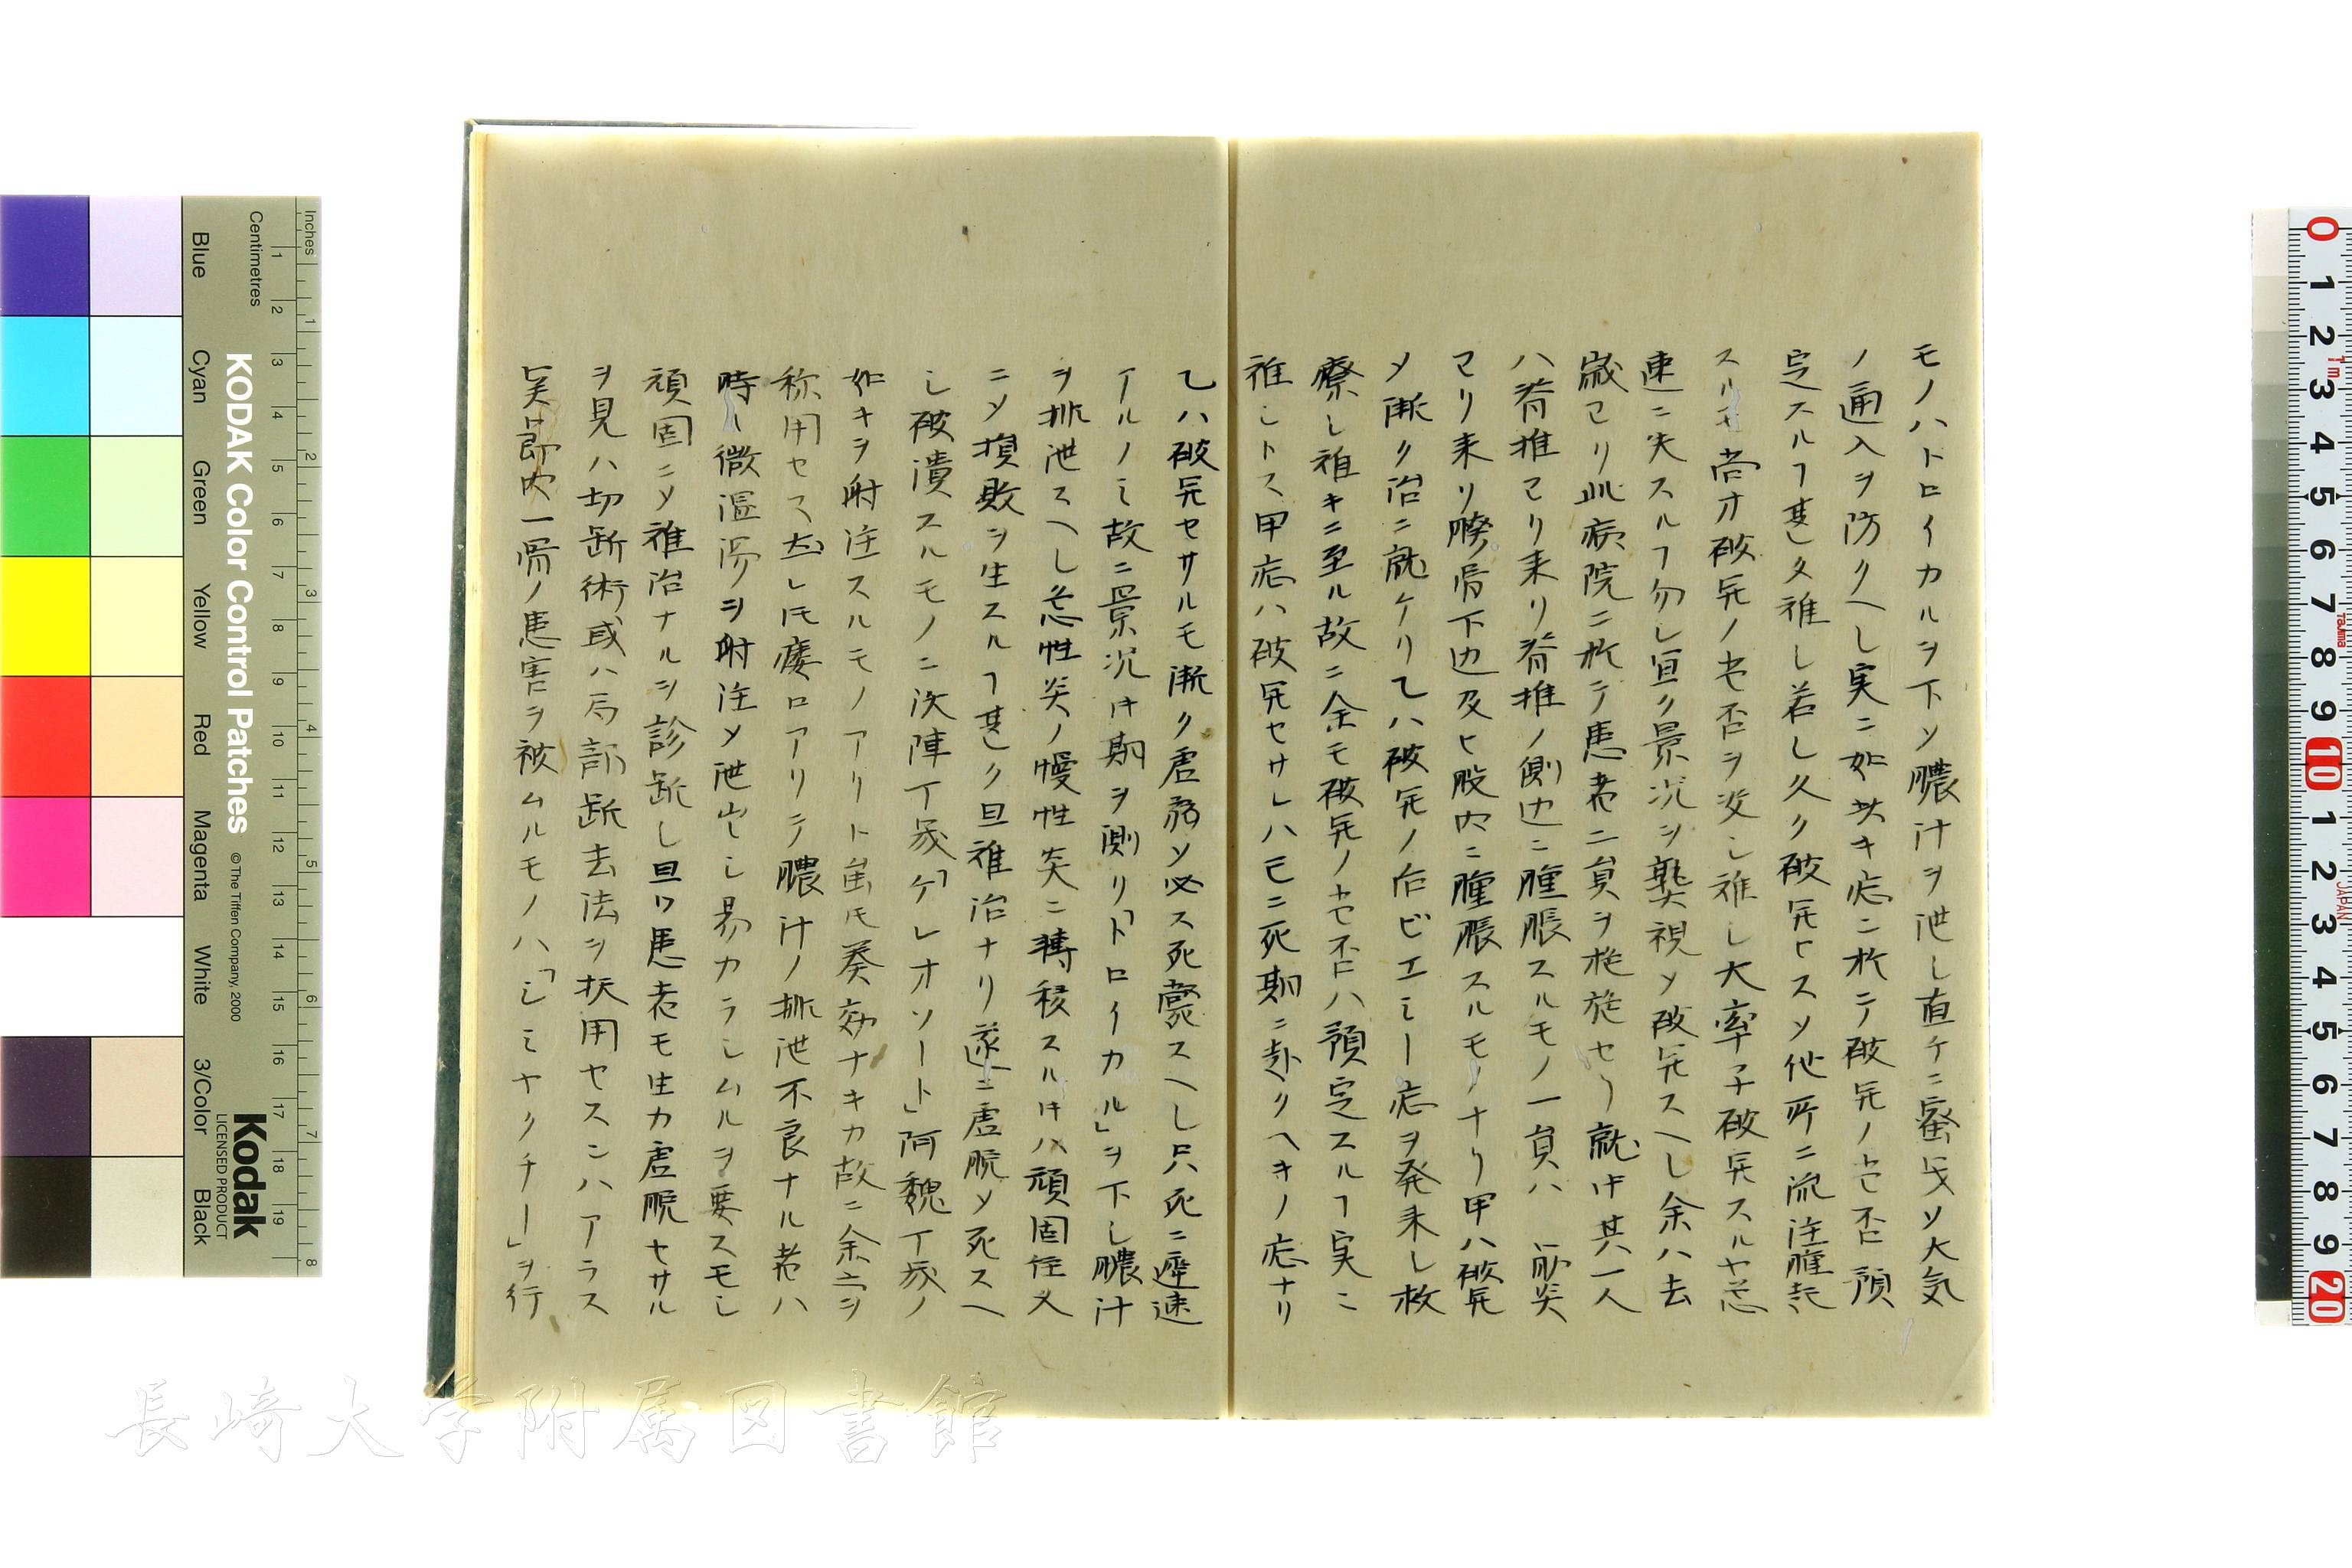 モノハトロイカルヲ下ソ膿汁ヲ泄シ直ケニ密ﾓソ大気
ノ通入ヲ防クヘシ実ニ如此キ症ニ於テ破宪ノセ否預
定スルヿ甚タ難シ若シ久ク破宪セスソ他所ニ流注腫起
スルモ尚オ破宪ノセ否ヲ決シ難シ大率子破宪スルヤ忽
速ニ失スルヿ勿レ宜ク景况ヲ熟視ソ破宪スヘシ余ハ去
歳ヨリ此病院ニ於テ患者二員ヲ施セリ就中其一人
ハ脊推ヨリ来リ脊推ノ側辺ニ腫脹スルモノ一員ハ
ヨリ来リ腰骨下辺及ヒ股内ニ腫脹スルモノナリ甲ハ破宪
ソ漸ク治ニ就ケリ乙ハ破宪ノ后ビエミー症ヲ発来シ救
療シ難キニ至ル故ニ余モ破宪ノセ否ハ預定スルヿ実ニ
難シトス甲症ハ破宪セサレハ已ニ死期ニ赴クヘキノ症ナリ
乙ハ破宪セサルモ漸ク虚弱ソ必ス死斃スヘシ只死ニ遅速
アルノミ故ニ景況ﾄキ期ヲ測リ「トロイカル」ヲ下シ膿汁
ヲ排泄スヘシ急性炎ノ慢性炎ニ轉移スルﾄキハ頑固住々
ニソ損敗ヲ生スルヿ甚シク且難治ナリ遂ニ虚脱ソ死スヘ
シ破潰スルモノニ次陣丁幾「ケレオソート」阿魏丁幾ノ
如キヲ射注スルモノアリト虽ﾄモ奏効ナキカ故ニ余ハ之ヲ
称用セス然レﾄモ瘻口アリテ膿汁ノ排泄不良ナル者ハ
時々微温湯ヲ射注ソ泄出シ易カラシムルヲ要スモシ
頑固ニソ難治ナルヲ診断シ且ツ患者モ生力虚脱セサル
ヲ見ハ切断術或ハ局部断去法ヲ扶用セスンハアラス
関節内一骨ノ患害ヲ被ムルモノハ「シミヤクチー」ヲ行
Inches
Centimetres
KODAK Color Control Patches
© The Tiffen Company, 2000
Kodak
LICENSED PRODUCT
Blue
Cyan
Green
Yellow
Red
Magenta
White
3/Color
Black
長崎大学附属図書館
Tajima
JAPAN